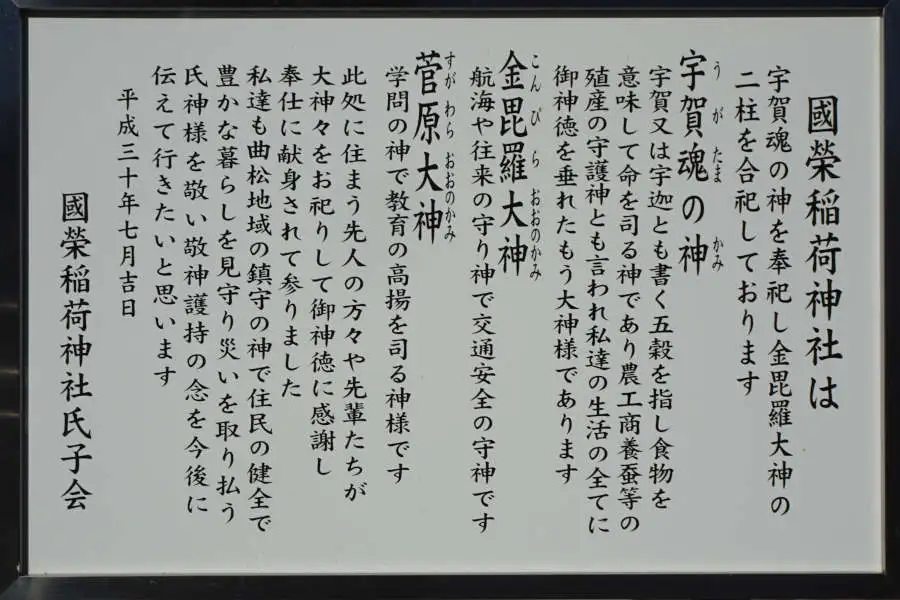 國榮稲荷神社は
宇賀魂の神を奉祀し金毘羅大神の
二柱を合祀しております
宇賀魂の神
うがたまかみ
宇賀又は宇迦とも書く五穀を指し食物を
意味して命を司る神であり農工商養蚕等の
殖産の守護神とも言われ私達の生活の全てに
御神徳を垂れたもう大神様であります
金毘羅大神
こんぴらおおのかみ
航海や往来の守り神で交通安全の守神です
菅原大神
すがわらおおのかみ
学問の神で教育の高揚を司る神様です
此処に住まう先人の方々や先輩たちが
大神々をお祀りして御神徳に感謝し
奉仕に献身されて参りました
私達も曲松地域の鎮守の神で住民の健全で
豊かな暮らしを見守り災いを取り払う
氏神様を敬い敬神護持の念を今後に
伝えて行きたいと思います
平成三十年七月吉日
國榮稲荷神社氏子会